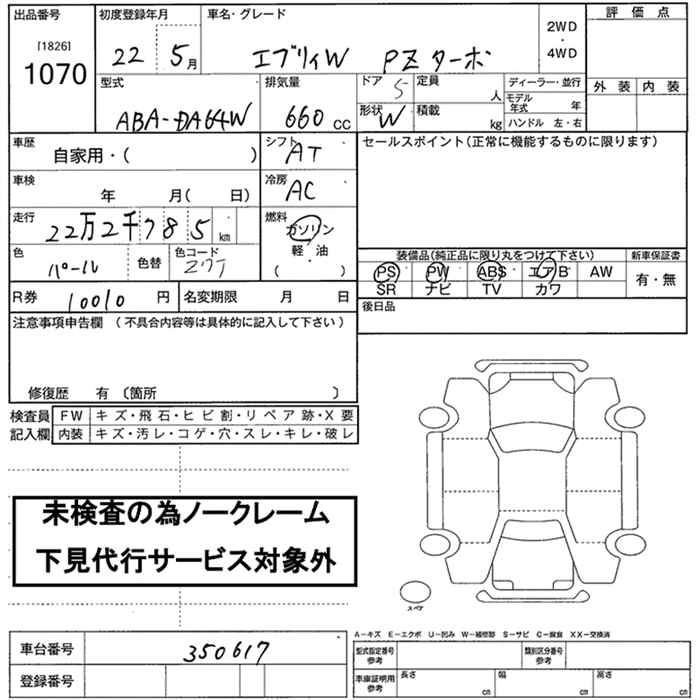 出品番号 初度登録年月 車名・グレード 2WD ・ 4WD 評価点
[1826] 1070 22 5月 エブリィW PZターボ
型式 排気量 ドア 5 定員 人 ディーラー・並行 外装 内装
モデル年式 年
ABA-DA64W 660 CC 形状 W 積載 kg ハンドル 左・右
車歴 自家用・( ) シフト AT セールスポイント(正常に機能するものに限ります)
車検 年 月( 日) 冷房 AC
走行 22万2千785km 燃料 ガソリン
軽・油
( )
色 パール 色替 色コード Z7T 装備品(純正品に限り丸をつけて下さい) 新車保証書
PS PW ABS エアB AW 有・無
SR ナビ TV カワ
R券 10010円 名変期限 月 日 後日品
注意事項申告欄 (不具合内容等は具体的に記入して下さい)
修復歴 有 〔箇所 〕
検査員 FW キズ・飛石・ヒビ割・リペア跡・X要
記入欄 内装 キズ・汚レ・コゲ・穴・スレ・キレ・破レ
未検査の為ノークレーム
下見代行サービス対象外
スペア
A-キズ E-エクボ U-凹み W-補修跡 S-サビ C-腐食 XX-交換済
車台番号 350617 型式指定番号 参考 類別区分番号 参考
登録番号 車庫証明用 参考 長さ cm 幅 cm 高さ cm